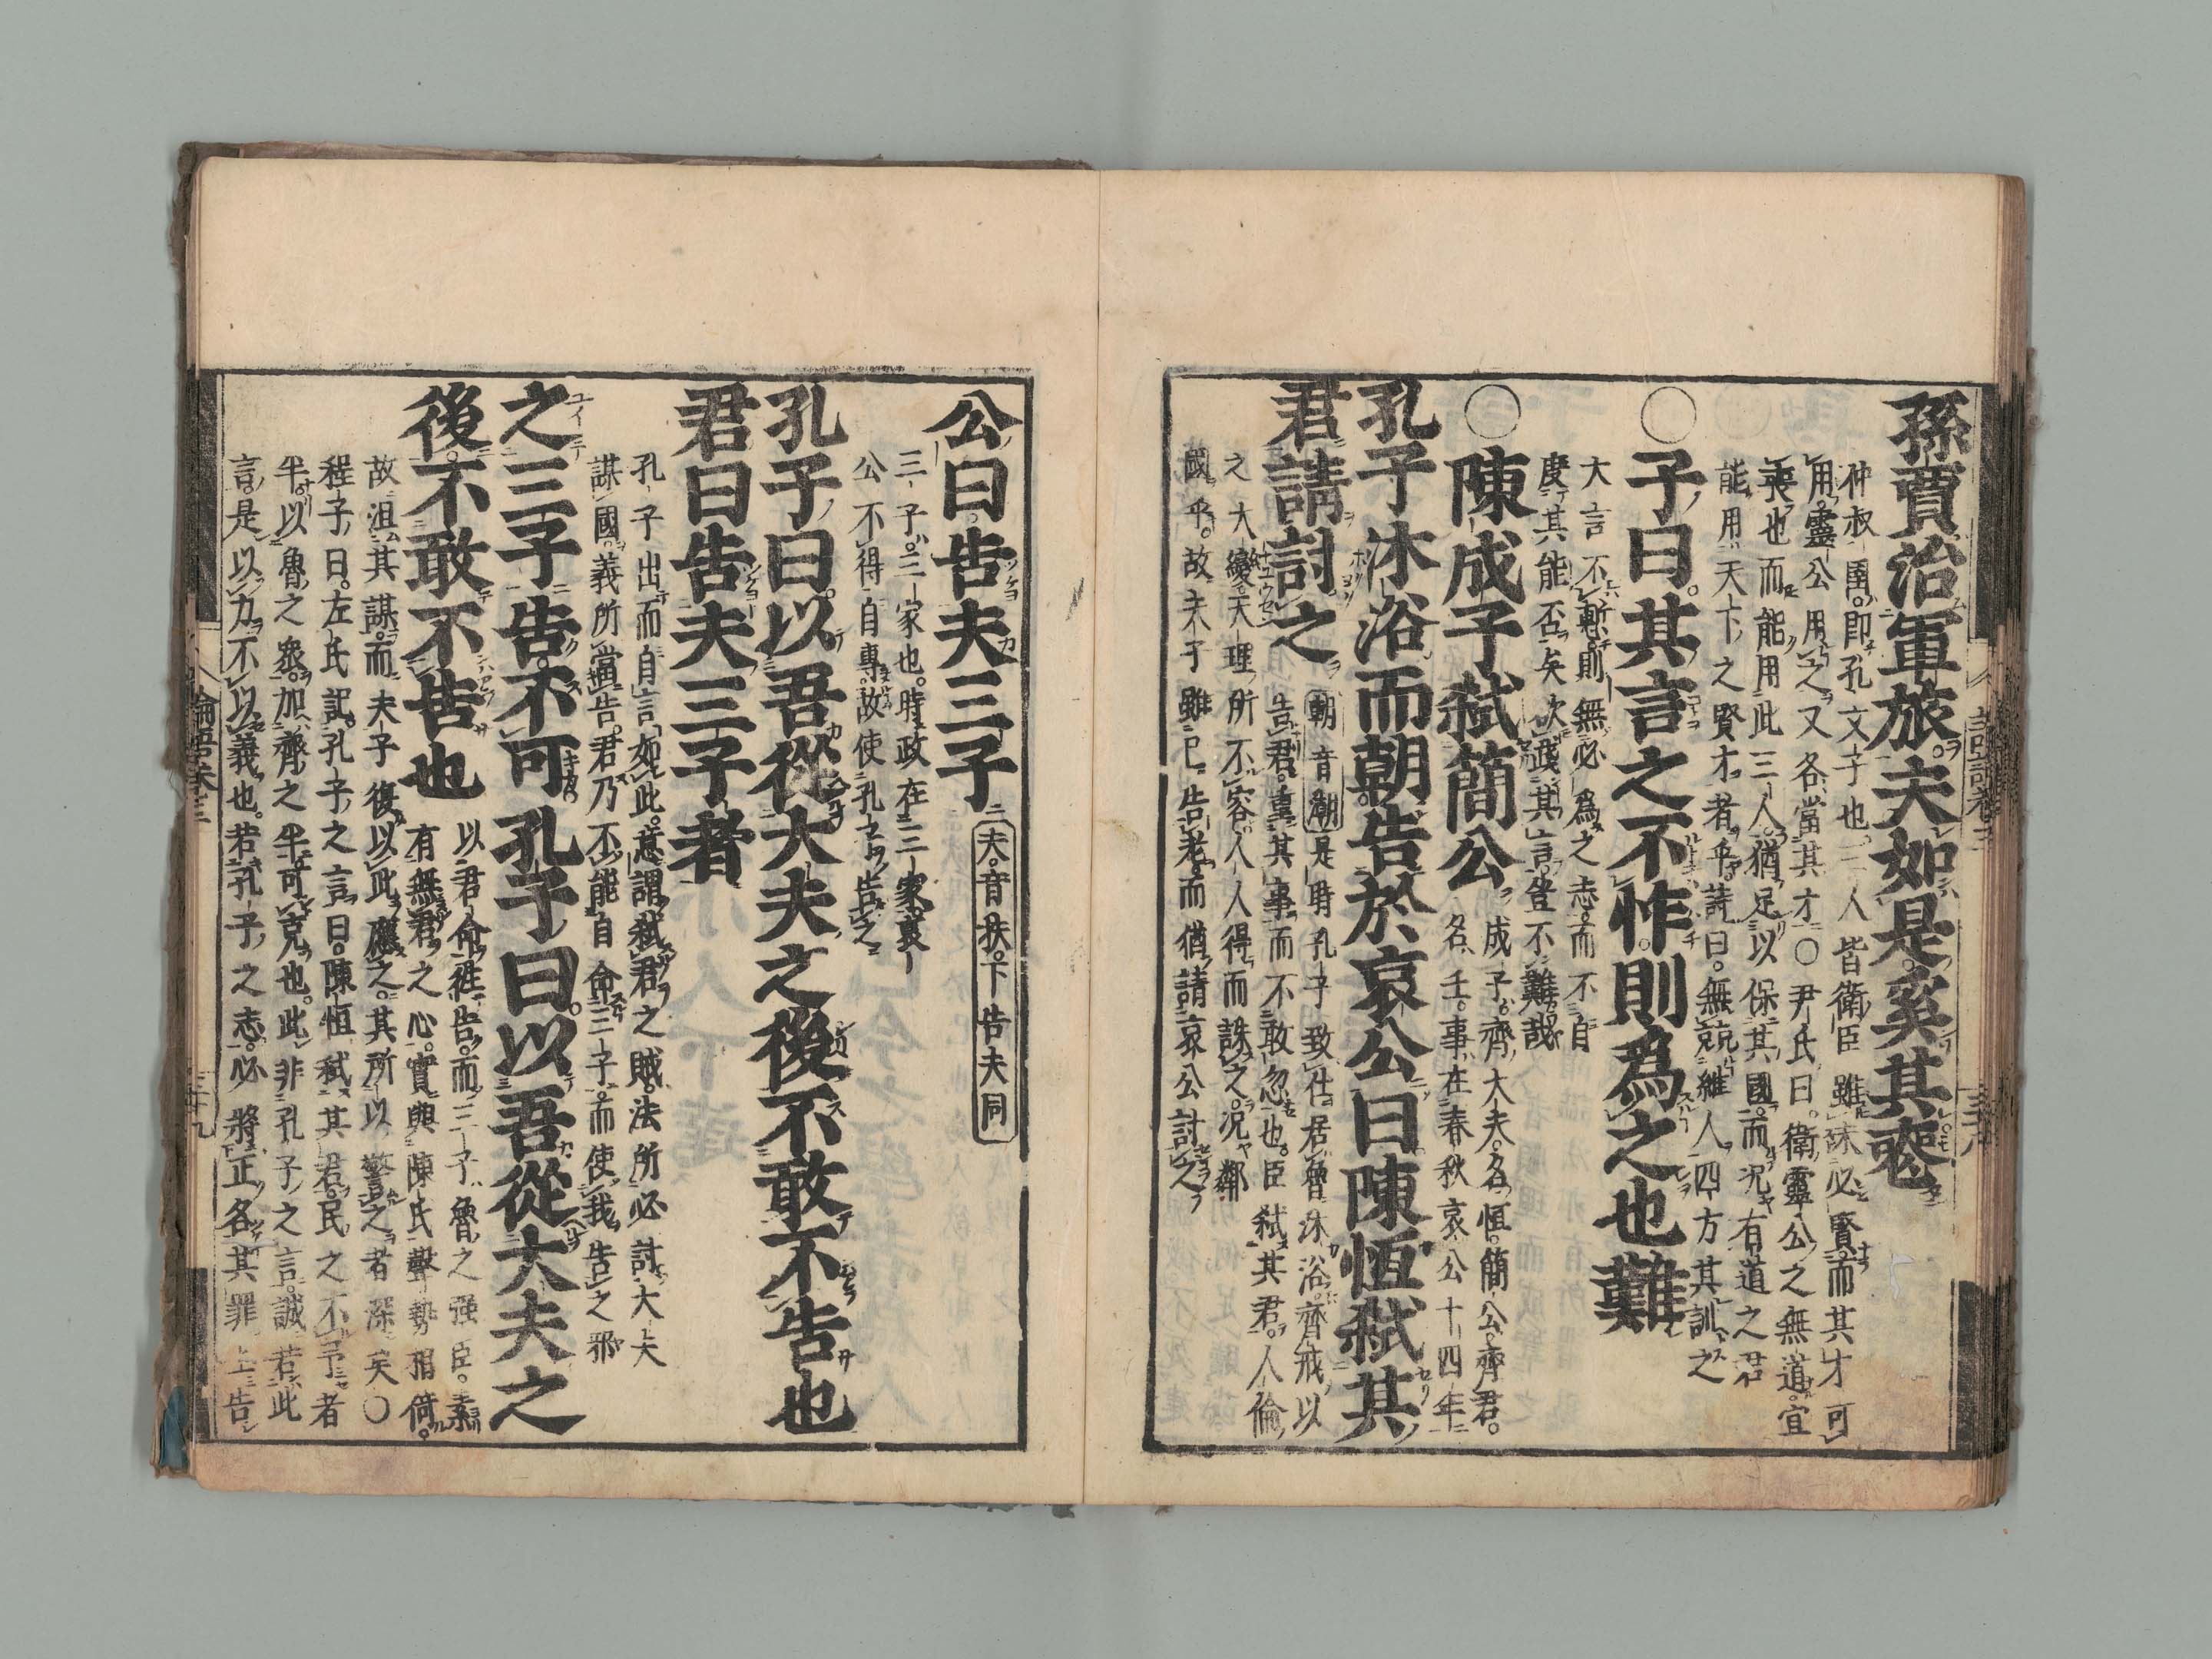 孫賈治軍旅。夫如是。奚其喪
仲叔圉。即孔文子也。三人皆衛臣雖未必賢。而其才可
用。靈公用之。又各當其才○尹氏曰。衛靈公之無道。宜
喪也。而能用此三人。猶足以保其國。而況有道之君
能用天下之賢才者乎。詩曰。無競維人。四方其訓之
○子曰。其言之不怍。則爲之也難
大言不慙。則無必爲之志。而不自
度其能否矣。欲踐其言。豈不難哉
○陳成子弑簡公
成子。齊大夫。名恒。簡公。齊君。
名壬。事在春秋哀公十四年
孔子沐浴而朝。告於哀公曰陳恒弑其
君請討之
朝音潮是時孔子致仕居魯沐浴。齊戒以
告君。重其事而不敢忽也。臣弑其君。人倫
之大變。天理所不容。人人得而誅之。況鄰
國乎。故夫子雖已告老。而猶請哀公討之
公曰。告夫三子
夫。音扶。下告夫同
三子。三家也。時政在三家哀
公不得自專。故使孔子告之
孔子曰。以吾從大夫之後不敢不告也
君曰告夫三子者
孔子出而自言如此。意謂弑君之賊。法所必討。大夫
謀國。義所當告。君乃不能自命三子。而使我告之邪
之三子告。不可。孔子曰。以吾從大夫之
後。不敢不告也
以君命往告。而三子。魯之强臣。素
有無君之心。實與陳氏聲勢相倚。
故沮其謀。而夫子復以此應之。其所以警之者深矣○
程子曰。左氏記。孔子之言曰。陳恒弑其君。民之不予者
半。以魯之衆。加齊之半。可克也。此非孔子之言。誠若此
言。是以力不以義也。若孔子之志。必將正名其罪上告